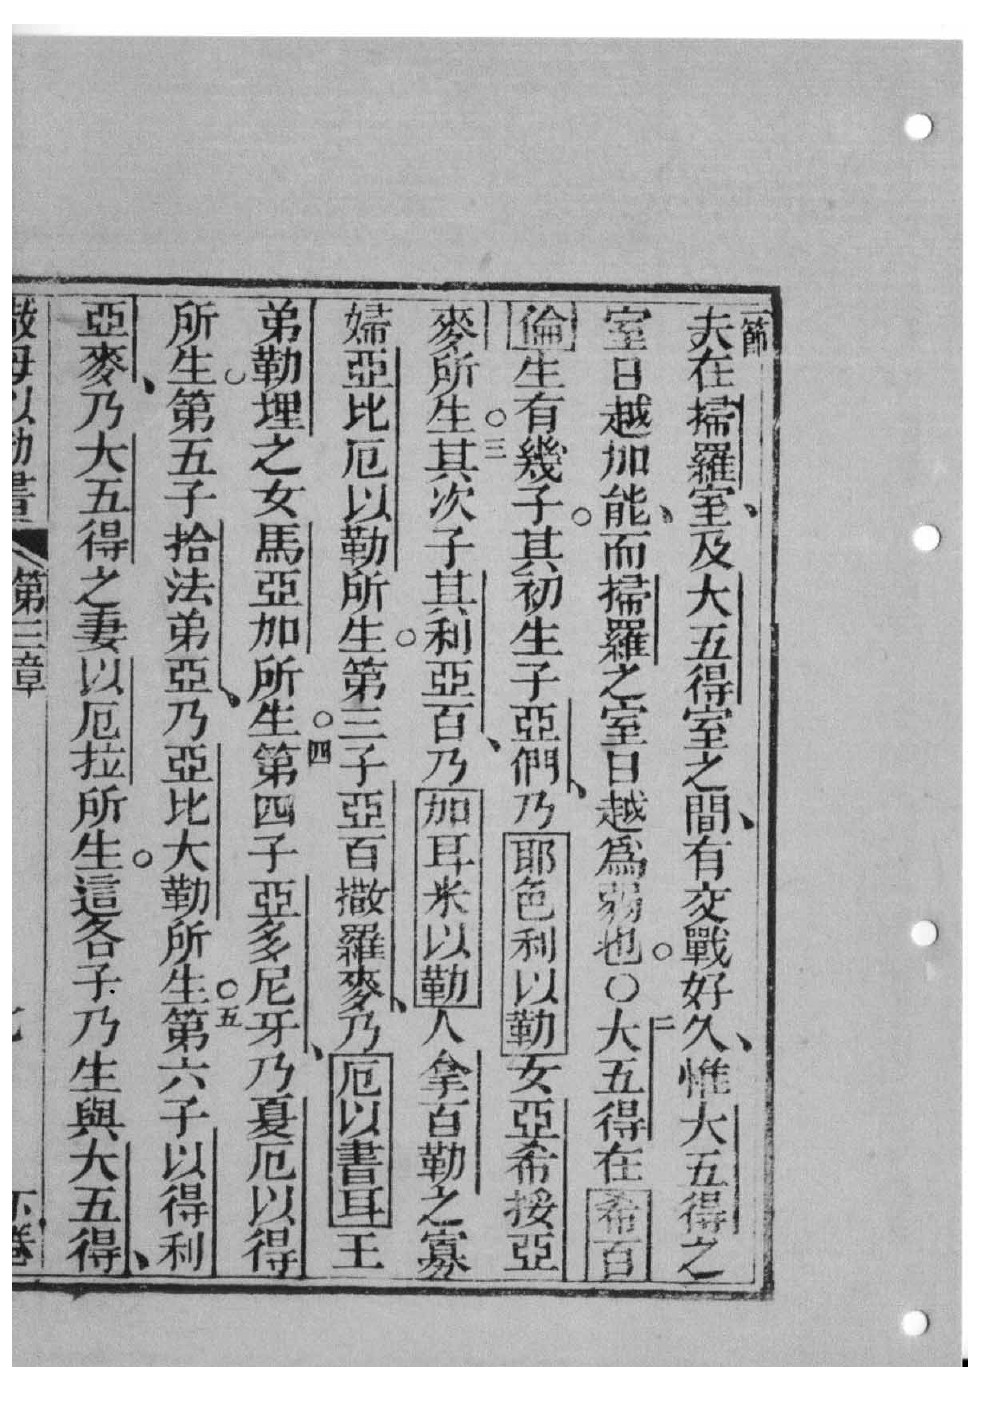 一節
夫在掃羅室、及大五得室之間、有交戰好久、惟大五得之
室日越加能、而掃羅之室日越爲弱也。○二大五得在希百
倫生有幾子。其初生子亞們、乃耶色利以勒女亞希接亞
麥所生。三其次子其利亞百、乃加耳米以勒人拿百勒之寡
婦亞比厄以勒所生。第三子亞百撒羅麥、乃厄以書耳王
弟勒埋之女馬亞加所生。四第四子亞多尼牙、乃夏厄以得
所生。第五子拾法弟亞、乃亞比大勒所生。五第六子以得利
亞麥、乃大五得之妻以厄拉所生。這各子乃生與大五得、
撒母以勒書 第三章 七 下卷